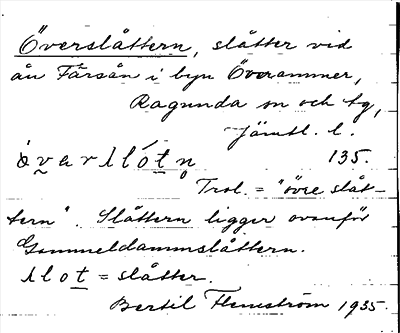 Överslåttern, slåtter vid
ån Färsån i byn Överammer,
Ragunda sn och tg,
Jämtl. l.
135.
Trol. = "övre slåt-
tern". Slåttern ligger ovanför
Gammeldammslåttern.
= slåtter.
Bertil Flemström 1935.